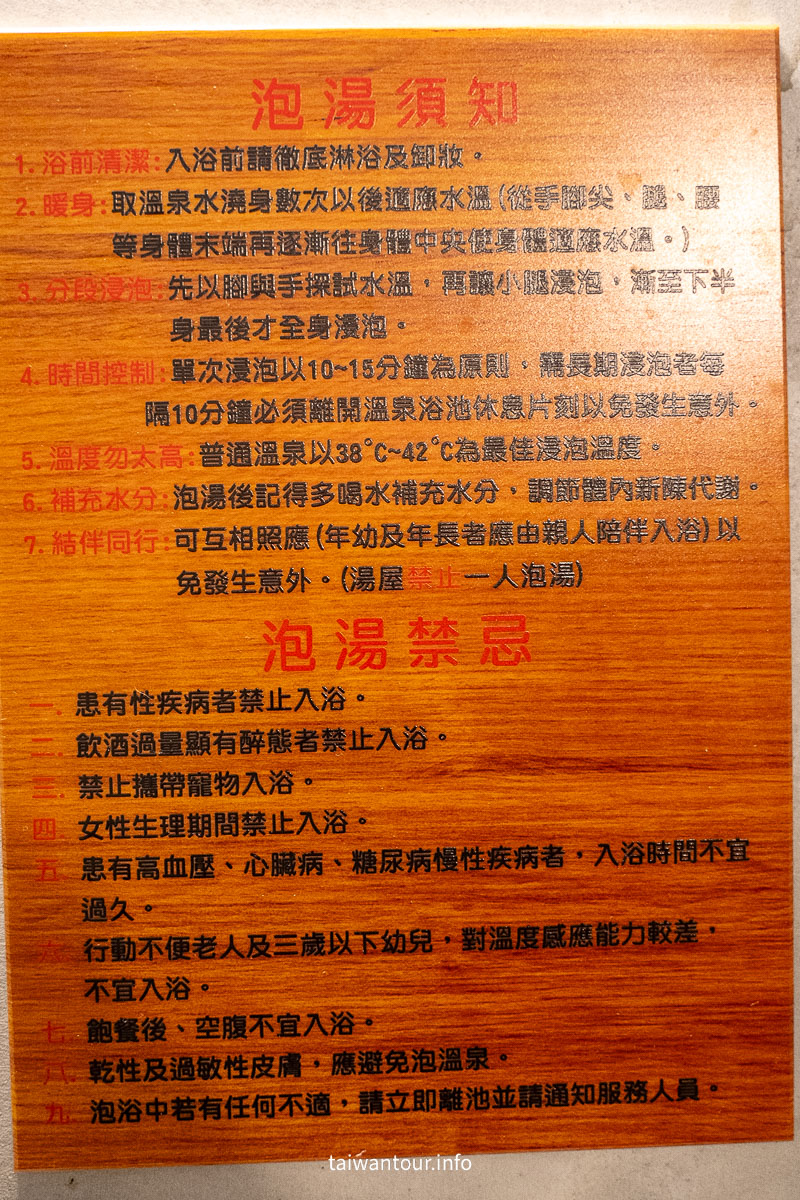 泡湯須知
1. 浴前清潔:入浴前請徹底淋浴及卸妝。
2. 暖身:取溫泉水澆身數次以後適應水溫(從手腳尖、腿、腰
等身體末端再逐漸往身體中央使身體適應水溫。)
3. 分段浸泡:先以腳與手探試水溫,再讓小腿浸泡,漸至下半
身最後才全身浸泡。
4. 時間控制:單次浸泡以10~15分鐘為原則,需長期浸泡者每
隔10分鐘必須離開溫泉浴池休息片刻以免發生意外。
5. 溫度勿太高:普通溫泉以38°C~42°C為最佳浸泡溫度。
6. 補充水分:泡湯後記得多喝水補充水分,調節體內新陳代謝。
7. 結伴同行:可互相照應(年幼及年長者應由親人陪伴入浴)以
免發生意外。(湯屋禁止一人泡湯)
泡湯禁忌
一. 患有性疾病者禁止入浴。
二. 飲酒過量顯有醉態者禁止入浴。
三. 禁止攜帶寵物入浴。
四. 女性生理期間禁止入浴。
五. 患有高血壓、心臟病、糖尿病慢性疾病者,入浴時間不宜
過久。
六. 行動不便老人及三歲以下幼兒,對溫度感應能力較差,
不宜入浴。
七. 飽餐後、空腹不宜入浴。
八. 乾性及過敏性皮膚,應避免泡溫泉。
九. 泡浴中若有任何不適,請立即離池並請通知服務人員。
taiwantour.info